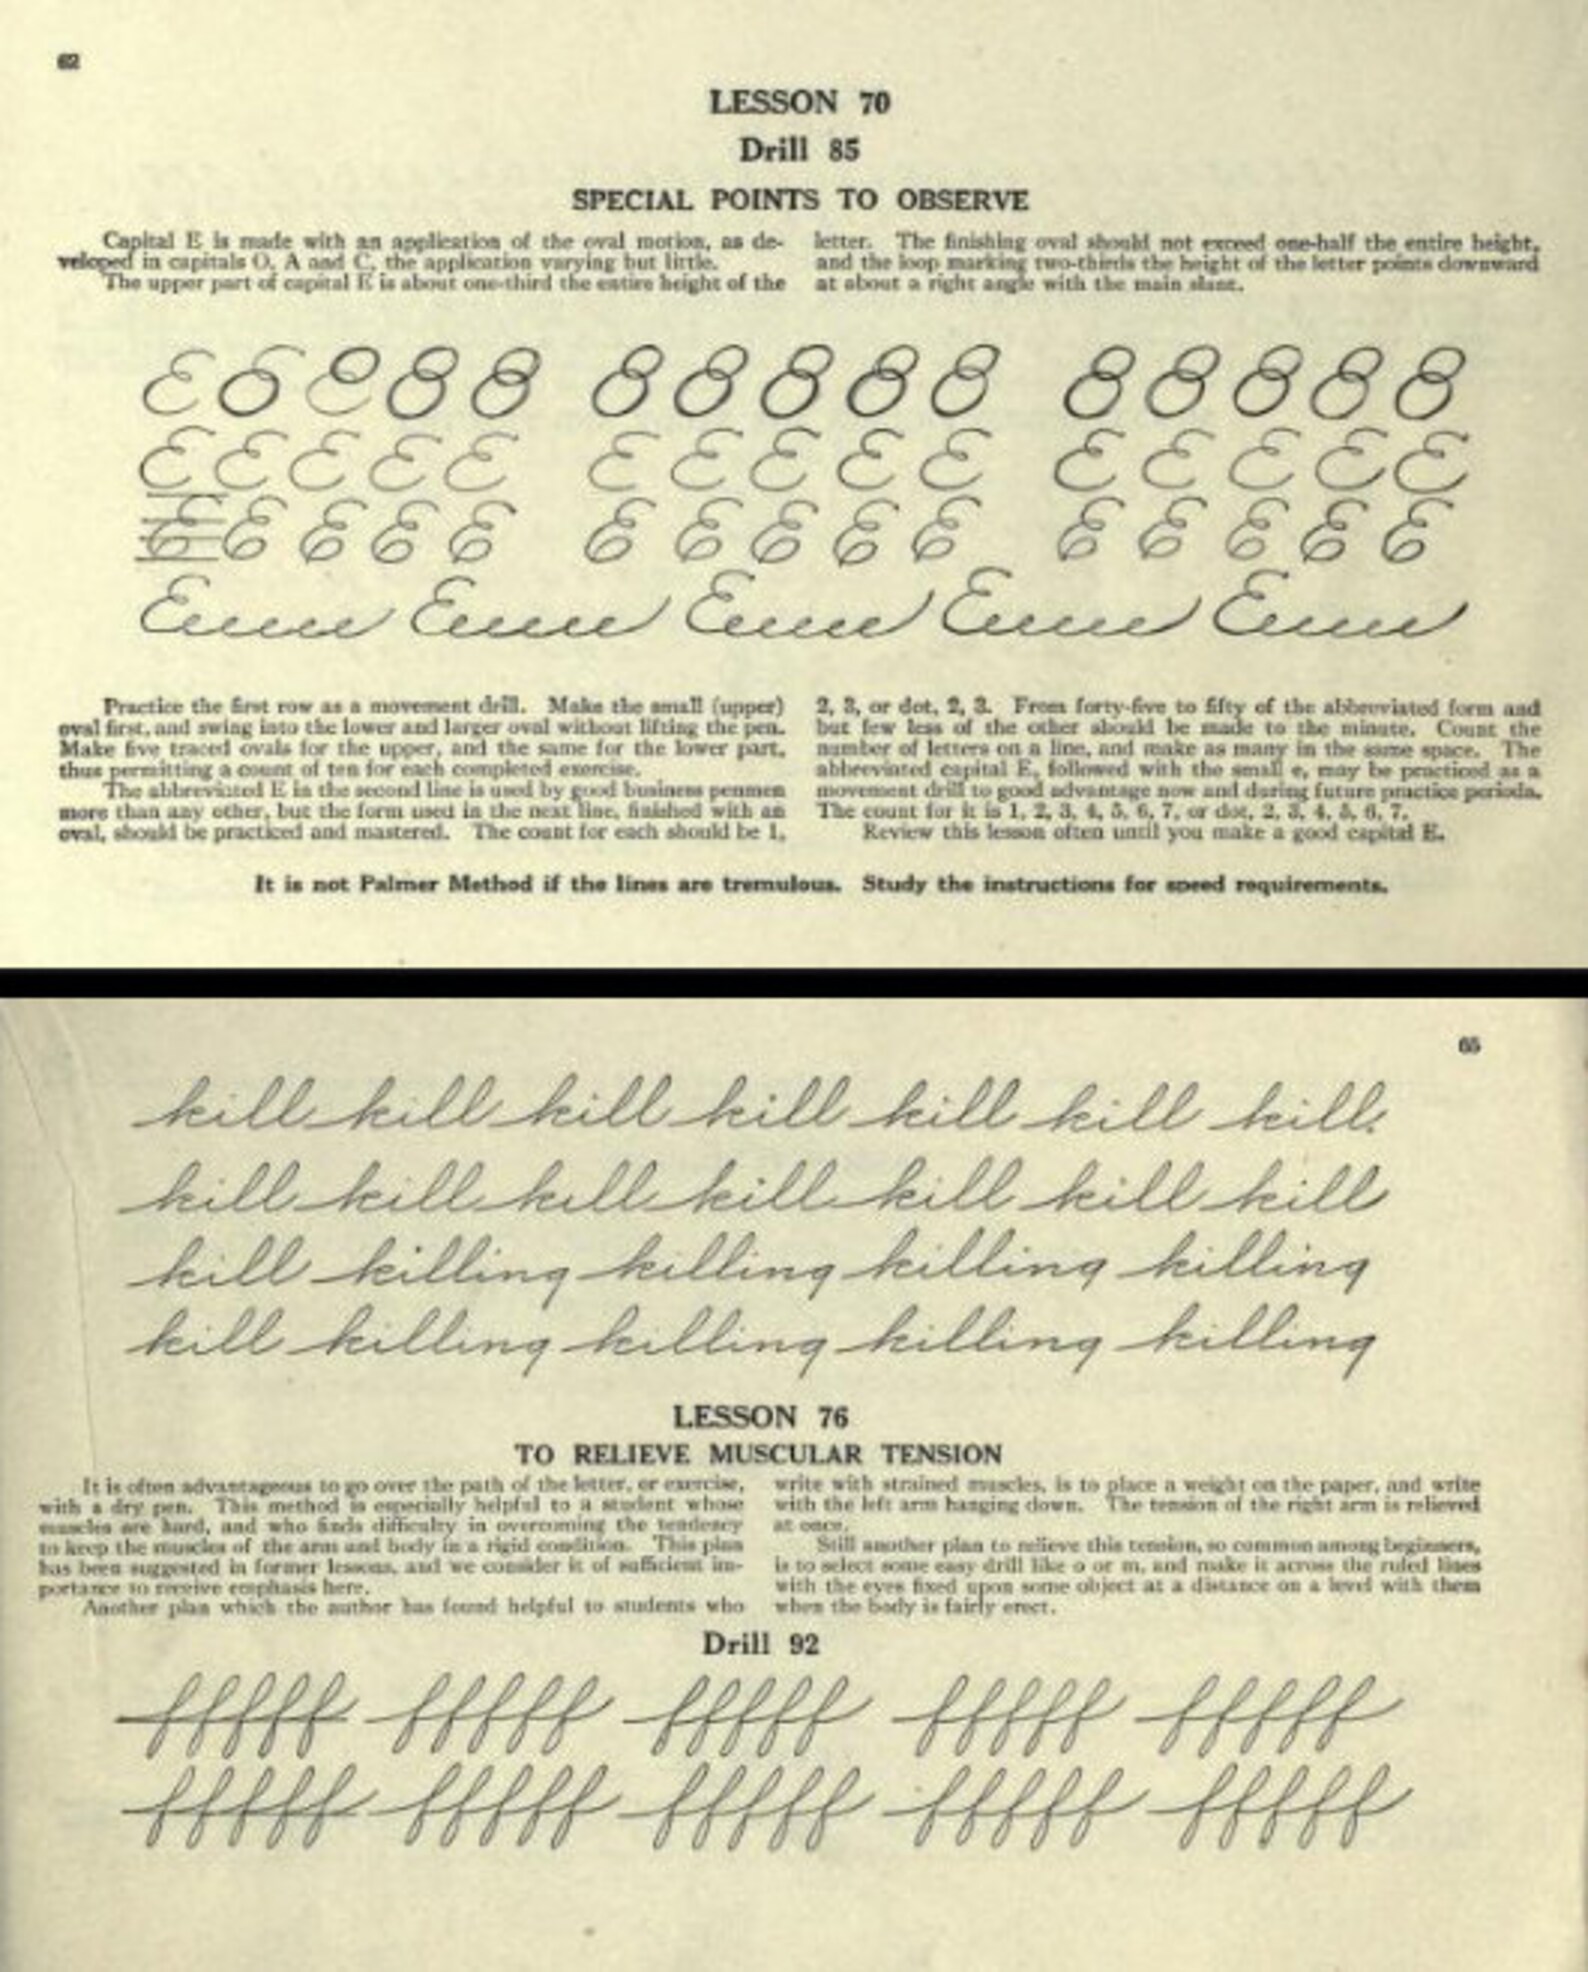 62
LESSON 70
Drill 85
SPECIAL POINTS TO OBSERVE
Capital E is made with an application of the oval motion, as de-
veloped in capitals O, A and C, the application varying but little.
The upper part of capital E is about one-third the entire height of the
letter. The finishing oval should not exceed one-half the entire height,
and the loop marking two-thirds the height of the letter points downward
at about a right angle with the main slant.
E 8 8
E E E E E E E E E E E E E E E
E E E E E E E E E E E E E E E
Eeeeee Eeeeee Eeeeee Eeeeee Eeeeee
Practice the first row as a movement drill. Make the small (upper)
oval first, and swing into the lower and larger oval without lifting the pen.
Make five traced ovals for the upper, and the same for the lower part,
thus permitting a count of ten for each completed exercise.
The abbreviated E in the second line is used by good business penmen
more than any other, but the form used in the next line, finished with an
oval, should be practiced and mastered. The count for each should be 1,
2, 3, or dot, 2, 3. From forty-five to fifty of the abbreviated form and
but few less of the other should be made to the minute. Count the
number of letters on a line, and make as many in the same space. The
abbreviated capital E, followed with the small e, may be practiced as a
movement drill to good advantage now and during future practice periods.
The count for it is 1, 2, 3, 4, 5, 6, 7, or dot, 2, 3, 4, 5, 6, 7.
Review this lesson often until you make a good capital E.
It is not Palmer Method if the lines are tremulous. Study the instructions for speed requirements.
65
kill kill kill kill kill kill kill
kill kill kill kill kill kill kill
kill killing killing killing killing
kill killing killing killing killing
LESSON 76
TO RELIEVE MUSCULAR TENSION
It is often advantageous to go over the path of the letter, or exercise,
with a dry pen. This method is especially helpful to a student whose
muscles are hard, and who finds difficulty in overcoming the tendency
to keep the muscles of the arm and body in a rigid condition. This plan
has been suggested in former lessons, and we consider it of sufficient im-
portance to receive emphasis here.
Another plan which the author has found helpful to students who
write with strained muscles, is to place a weight on the paper, and write
with the left arm hanging down. The tension of the right arm is relieved
at once.
Still another plan to relieve this tension, so common among beginners,
is to select some easy drill like o or m, and make it across the ruled lines
with the eyes fixed upon some object at a distance on a level with them
when the body is fairly erect.
Drill 92
fffff fffff fffff fffff fffff
fffff fffff fffff fffff fffff